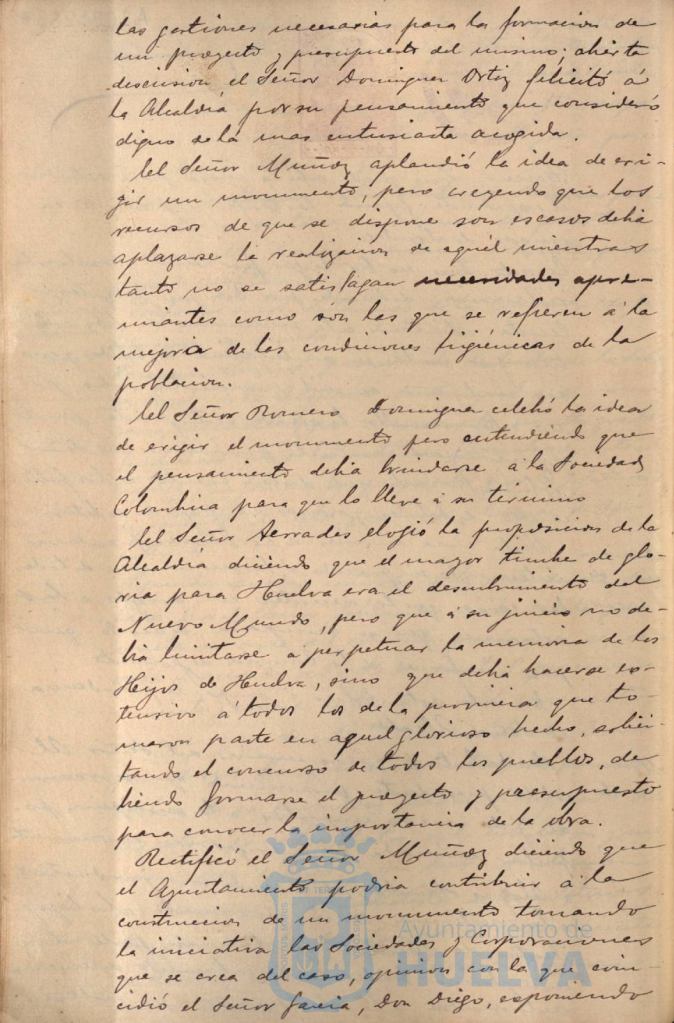 las gestiones necesarias para la formacion de
un proyecto y presupuesto del mismo; abierta
discusion el Señor Dominguez Ortiz felicitó á
la Alcaldía por su pensamiento que consideró
digno de la mas entusiasta acogida.
El Señor Muñoz aplaudió la idea de eri-
gir un monumento, pero creyendo que los
recursos de que se dispone son escasos debia
aplazarse la realizacion de aquél mientras
tanto no se satisfagan necesidades apre-
miantes como són las que se refieren á la
mejora de las condiciones higiénicas de la
poblacion.
El Señor Romero Dominguez celebró la idea
de erigir el monumento pero entendiendo que
el pensamiento debia brindarse á la Sociedad
Colombina para que lo lleve á su término
El Señor Terrades elogió la proposicion de la
Alcaldía diciendo que el mayor timbre de glo-
ria para Huelva era el descubrimiento del
Nuevo Mundo, pero que á su juicio no de-
bia limitarse á perpetuar la memoria de los
Hijos de Huelva, sino que debia hacerse ex-
tensivo á todos los de la provincia que to-
maron parte en aquel glorioso hecho, solici-
tando el concurso de todos los pueblos, de-
biendo formarse el proyecto y presupuesto
para conocer la importancia de la obra.
Rectificó el Señor Muñoz diciendo que
el Ayuntamiento podria contribuir á la
construccion de un monumento tomando
la iniciativa las Sociedades y Corporaciones
que se crea del caso, opinion con la que coin-
cidió el Señor Garcia, Don Diego, exponiendo
Ayuntamiento de
HUELVA